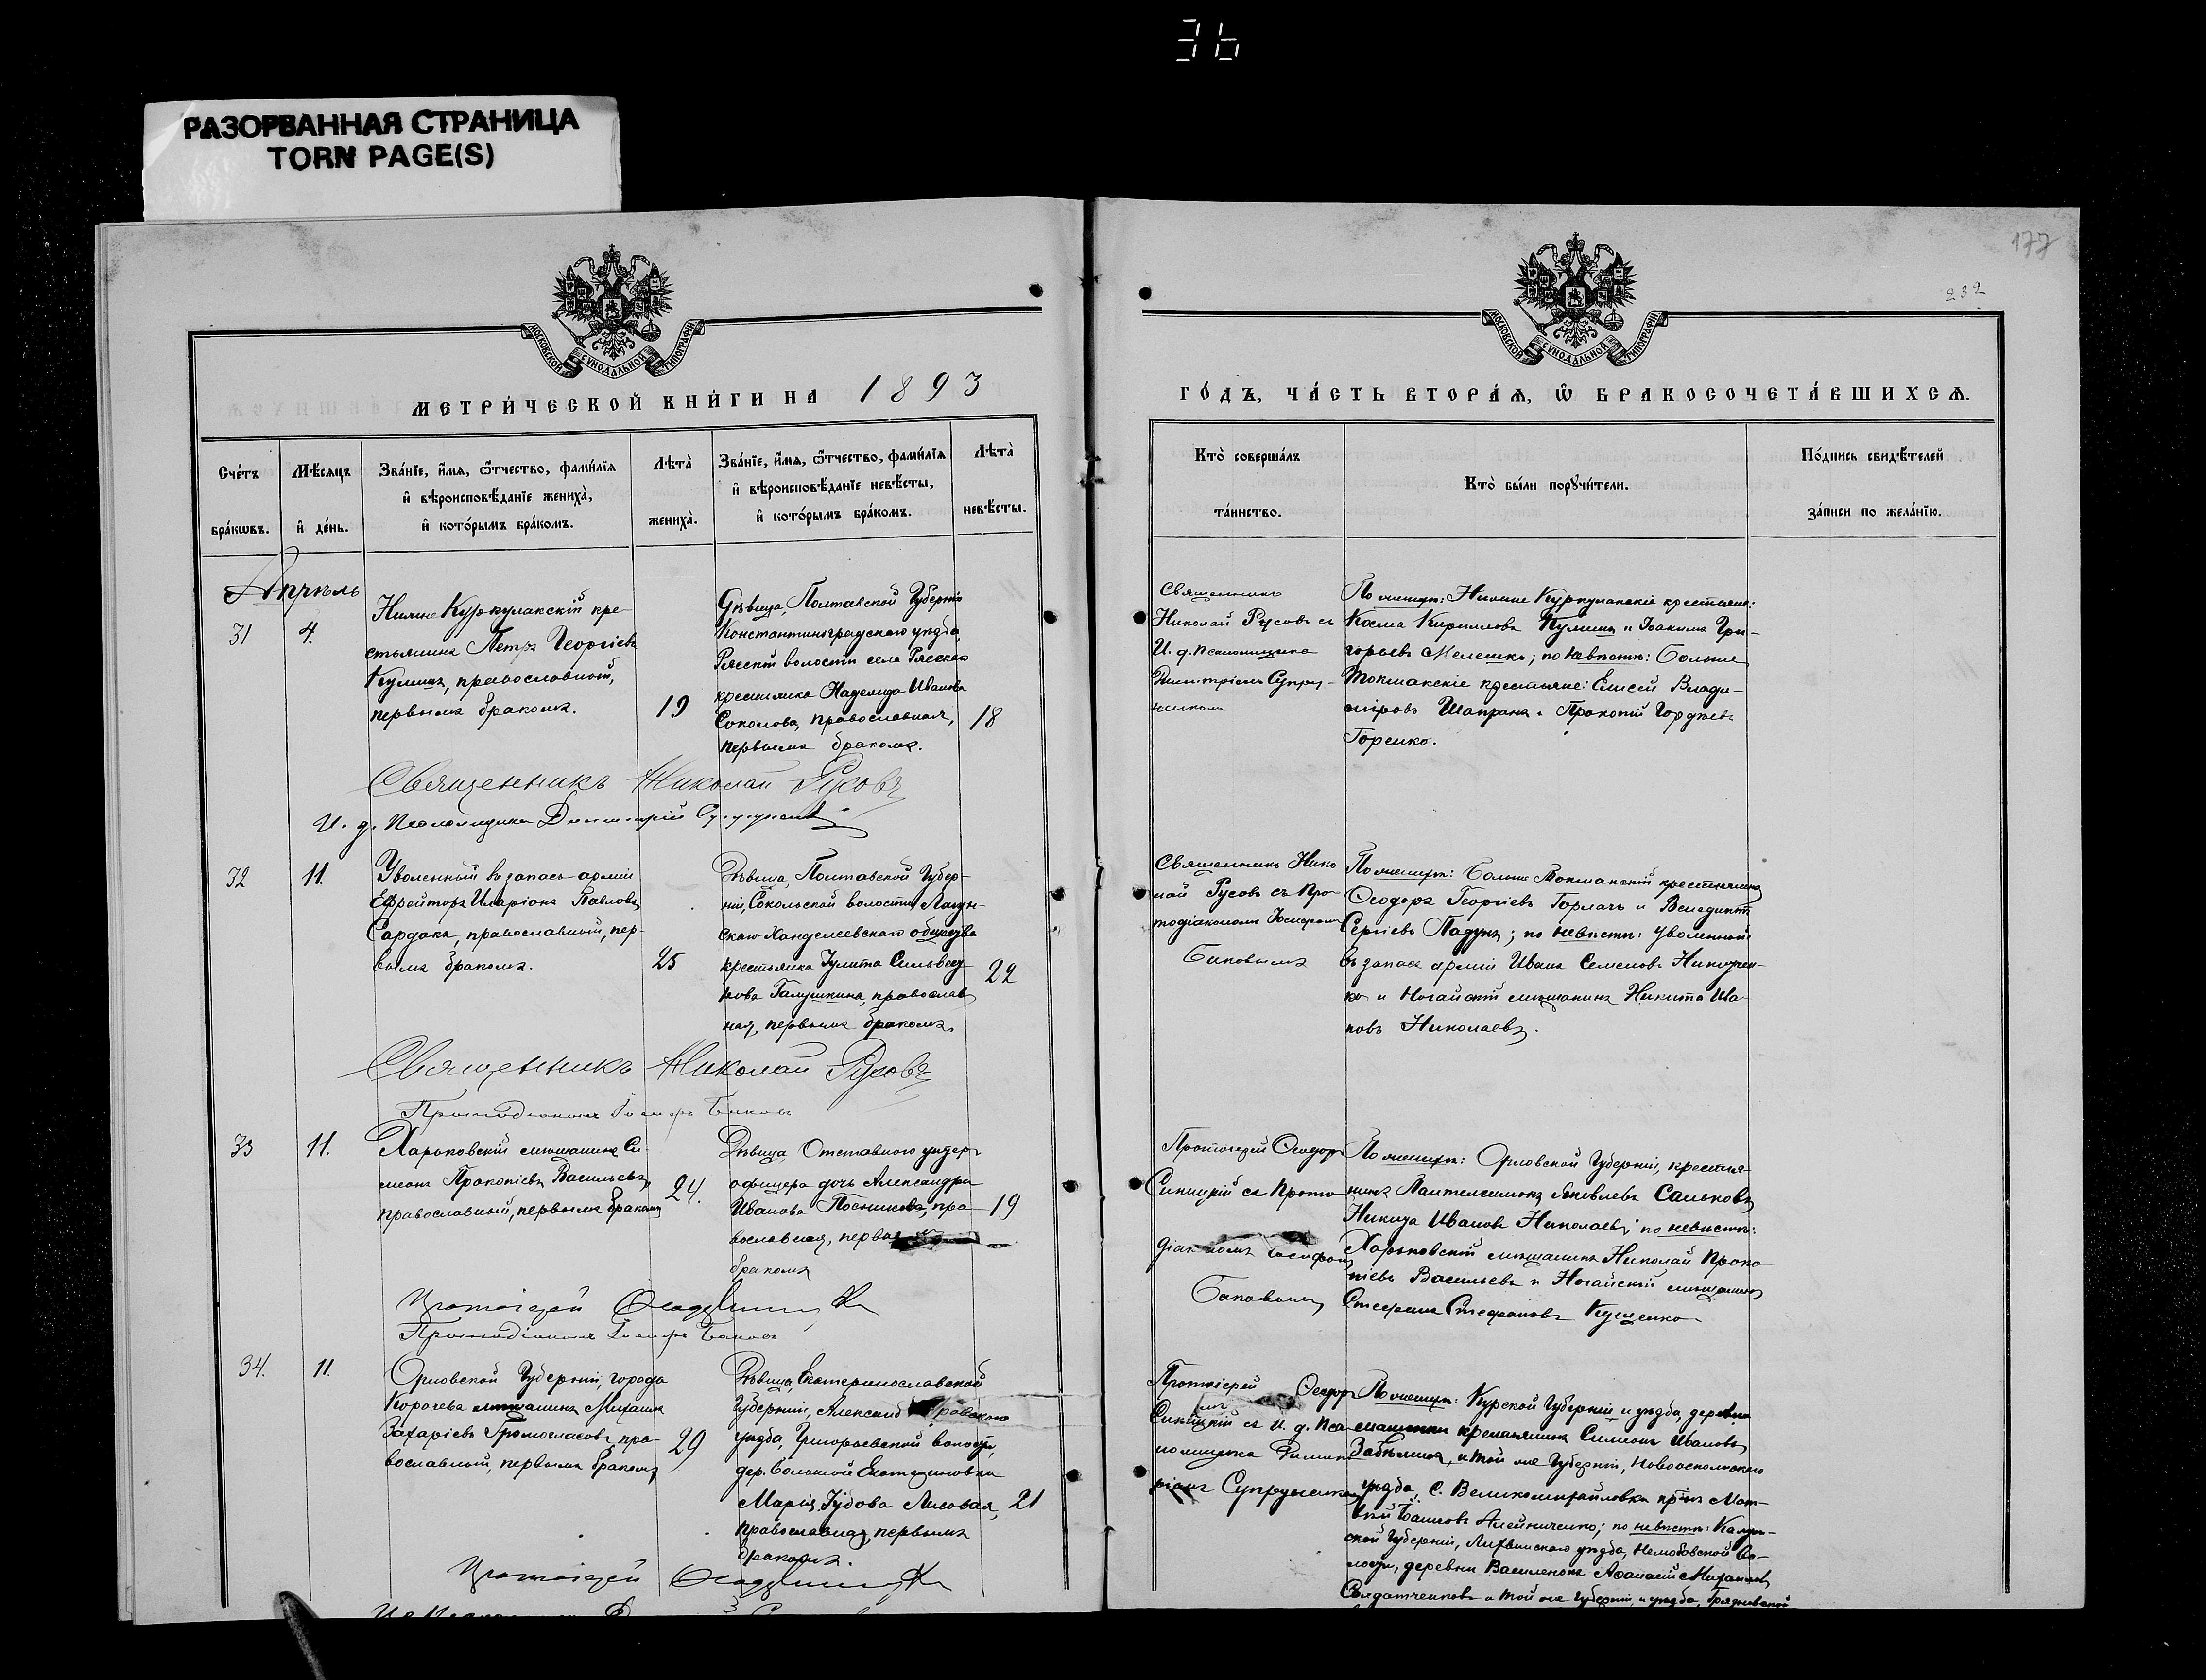 36
РАЗОРВАННАЯ СТРАНИЦА
TORN PAGE(S)
177
232
МОСКОВСКОЙ СѴНОДАЛЬНОЙ ТИПОГРАФІИ
МОСКОВСКОЙ СѴНОДАЛЬНОЙ ТИПОГРАФІИ
МЕТРИ́ЧЕСКОЙ КНИ́ГИ НА 1893
ГО́ДЪ, ЧА́СТЬ ВТОРА́Ѧ, Ѿ БРАКОСОЧЕТА́ВШИХСѦ.
Сче́тъ бра́кѡвъ.
Мѣ́сяцъ и҆ де́нь.
Зва́нїе, и҆́мѧ, ѻ҆́тчество, фами́лїѧ
и҆ вѣроисповѣ́данїе жениха̀,
и҆ кото́рымъ бра́комъ.
Лѣта̀ жениха̀.
Зва́нїе, и҆́мѧ, ѻ҆́тчество, фами́лїѧ
и҆ вѣроисповѣ́данїе невѣ́сты,
и҆ кото́рымъ бра́комъ.
Лѣта̀ невѣ́сты.
Кто̀ соверша́лъ та́инство.
Кто̀ бы́ли порꙋчи́тели.
По́дпись свидѣ́телей
за́писи по жела́нїю.
Апрѣль
31
4.
Нижне Куркулакскій кре-
стьянинъ Петръ Георгіевъ
Кулишъ, православный,
первымъ бракомъ.
19
Дѣвица, Полтавской Губерніи
Константиноградскаго уѣзда,
Рясской волости села Рясскаго
крестьянка Надежда Иванова
Соколова, православная,
первымъ бракомъ.
18
Священникъ
Николай Русовъ съ
И. д. псаломщика
Димитріемъ Супру-
номъ
По женихѣ: Нижне Куркулакскіе крестьяне:
Косма Кирилловъ Кулишъ и Іоакимъ Гри-
горьевъ Мелешко; по невѣстѣ: Больше
Токмакскіе крестьяне: Елисей Влади-
міровъ Шапранъ и Прокопій Гордѣевъ
Горенко.
Священникъ Николай Русовъ
И. д. Псаломщика Димитрій
32
11.
Уволенный въ запасъ арміи
Ефрейторъ Иларіонъ Павловъ
Сардакъ, православный, пер-
вымъ бракомъ.
25
Дѣвица, Полтавской Губер-
ніи, Сокольской волости,
общества
крестьянка Іулита Сильвест-
рова Галушкина, православ-
ная, первымъ бракомъ.
22
Священникъ Нико
лай Русовъ съ Про-
тодіакономъ Іосифомъ
Баковымъ
По женихѣ: Больше Токмакскій крестьянинъ
Ѳеодоръ Георгіевъ Горлачъ и Венедиктъ
Сергіевъ Падунъ; по невѣстѣ: уволенный
въ запасъ арміи Иванъ Семеновъ
и Ногайскій мѣщанинъ Никита Ива-
новъ Николаевъ.
Священникъ Николай Русовъ
Протодіаконъ Іосифъ Баковъ
33
11.
Харьковскій мѣщанинъ Си-
меонъ Прокопіевъ Васильевъ,
православный, первымъ бракомъ
24.
Дѣвица, Отставного унтеръ
офицера дочь Александра
Иванова Посникова, пра-
вославная, первымъ
бракомъ
19
Протоіерей Ѳеодоръ
Синицкій съ Прото
діакономъ Іосифомъ
Баковымъ
По женихѣ: Орловской Губерніи, крестья-
нинъ Пантелеимонъ Яковлевъ Саньковъ
Никита Ивановъ Николаевъ; по невѣстѣ:
Харьковскій мѣщанинъ Николай Проко-
піевъ Васильевъ и Ногайскій мѣщанинъ
Стефанъ Стефановъ Кущенко
Протоіерей
Протодіаконъ Іосифъ Баковъ
34.
11.
Орловской Губерніи, города
Корочева мѣщанинъ Михаилъ
Захаріевъ Громогласовъ, пра-
вославный, первымъ бракомъ
29
Дѣвица, Екатеринославской
Губерніи, Александровскаго
уѣзда, Григорьевской волости,
дер. Большой Екатериновки
Марія Іудова Лисовая,
православная, первымъ
бракомъ.
21
Протоіерей Ѳеодоръ
Синицкій съ И. д. Пса
ломщика
Супруномъ
По женихѣ: Курской Губерніи и уѣзда деревни
крестьянинъ Симеонъ Ивановъ
Забѣлинъ, и той же Губерніи, Новооскольскаго
уѣзда, С. Великомихайловки кр-нъ Мат-
вей Алейниченко; по невѣстѣ: Калуж-
ской Губерніи, Лихвинскаго уѣзда, во-
лости, деревни Василенокъ Аѳанасій Михаиловъ
Солдатченковъ и той же Губерніи, и уѣзда,
Протоіерей